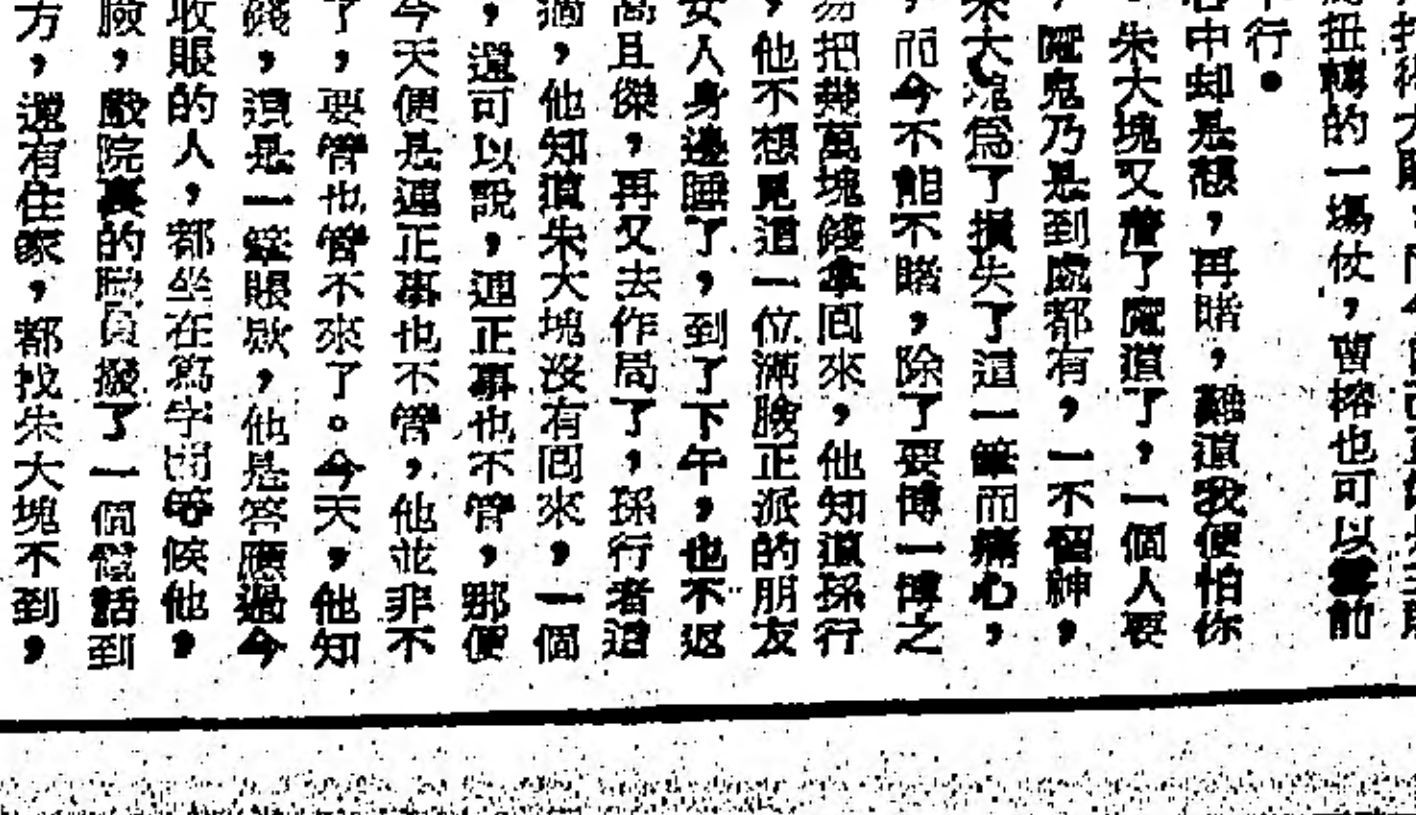 行。
扭轉的一場仗，曹榕也可以當前
心中却是想，再賭，難道我便怕你
，朱大塊又着了魔道了，一個人要
，魔鬼乃是到處都有，一不留神，
朱大塊爲了損失了這一筆而痛心，
，而今不能不賭，除了要博一博之
易把幾萬塊錢拿回來，他知道孫行
，他不想見這一位滿腔正派的朋友
女人身邊睡了，到了下午，也不返
高且傑，再又去作局了，孫行者這
，他知道朱大塊沒有回來，一個
，還可以說，連正事也不管，那便
今天便是連正事也不管，他並非不
了，要管也管不來了。今天，他知
錢，還是一筆賬欵，他是答應過今
收賬的人，都坐在寫字間等候他，
臉，戲院裏的職員撥了一個電話到
方，還有住家，都找朱大塊不到，